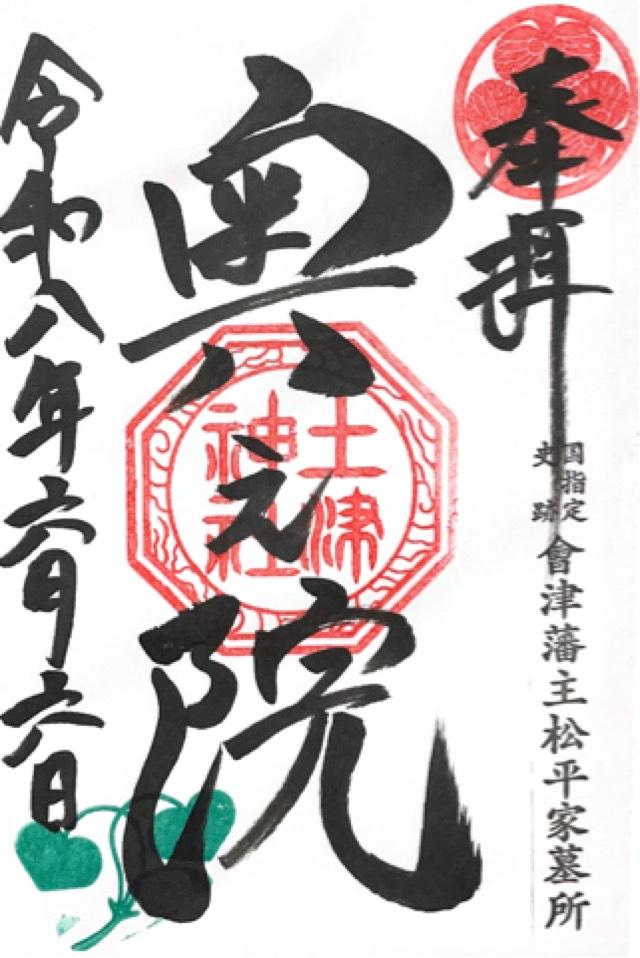 奉拝
国指定
史跡
會津藩主松平家墓所
奥之院
土津
神社
令和八年六月六日